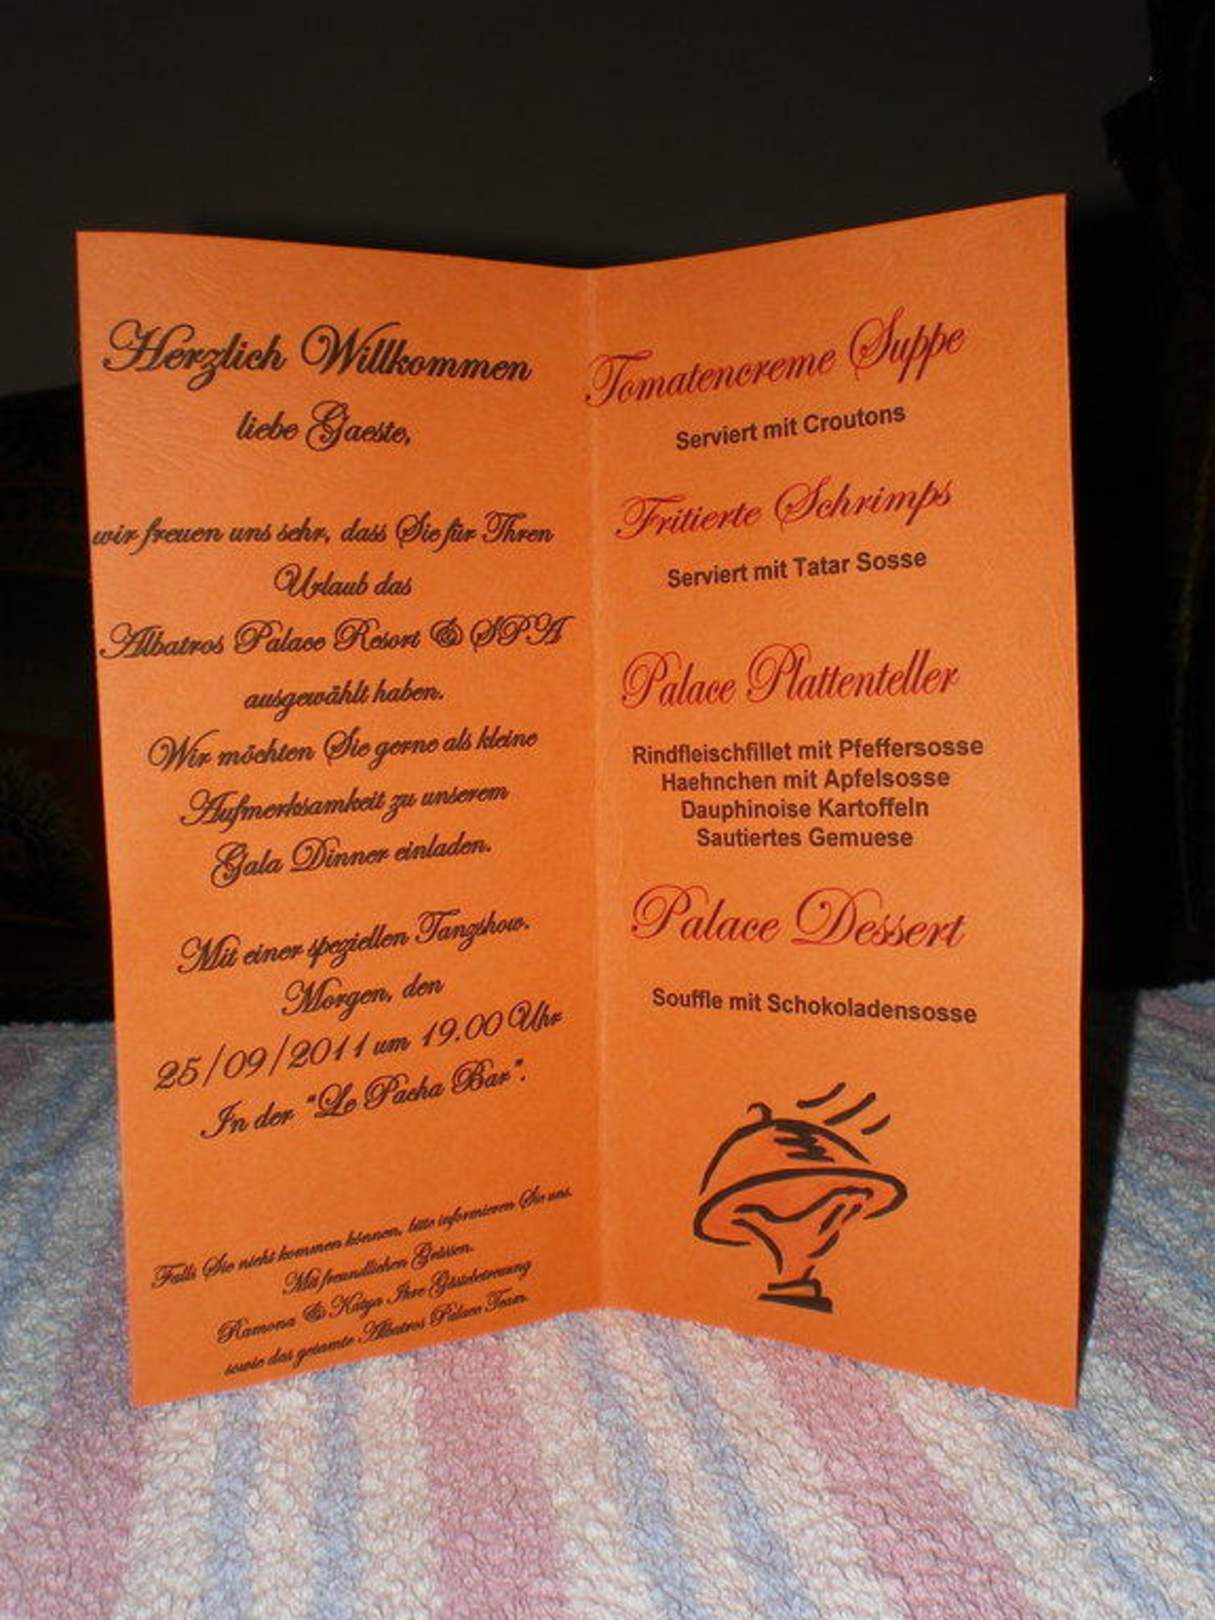 Herzlich Willkommen
liebe Gaeste,
wir freuen uns sehr, dass Sie für Ihren
Urlaub das
Albatros Palace Resort & SPA
ausgewählt haben.
Wir möchten Sie gerne als kleine
Aufmerksamkeit zu unserem
Gala Dinner einladen.
Mit einer speziellen Tanzshow.
Morgen, den
25/09/2011 um 19.00 Uhr
In der "Le Pacha Bar".
Falls Sie nicht kommen können, bitte informieren Sie uns.
Mit freundlichen Grüssen.
Ramona & Katya Ihre Gästebetreuung
sowie das gesamte Albatros Palace Team.
Tomatencreme Suppe
Serviert mit Croutons
Fritierte Schrimps
Serviert mit Tatar Sosse
Palace Plattenteller
Rindfleischfillet mit Pfeffersosse
Haehnchen mit Apfelsosse
Dauphinoise Kartoffeln
Sautiertes Gemuese
Palace Dessert
Souffle mit Schokoladensosse